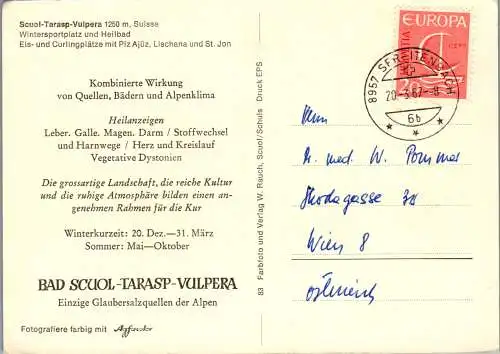 Scuol-Tarasp-Vulpera 1250 m, Suisse
Wintersportplatz und Heilbad
Eis- und Corlingplätze mit Piz Ajüz, Lischana und St. Jon
Kombinierte Wirkung
von Quellen, Bädern und Alpenklima
Heilanzeigen
Leber. Galle. Magen. Darm / Stoffwechsel
und Harnwege / Herz und Kreislauf
Vegetative Dystonien
Die grossartige Landschaft, die reiche Kultur
und die ruhige Atmosphäre bilden einen an-
genehmen Rahmen für die Kur
Winterkurzeit: 20. Dez.—31. März
Sommer: Mai—Oktober
BAD SCUOL-TARASP-VULPERA
Einzige Glaubersalzquellen der Alpen
Fotografiere farbig mit Agfacolor
83 Farbfoto und Verlag W. Rauch, Scuol/Schuls Druck EPS
EUROPA
HELVETIA
CEPT
20
8957 SPREITENBACH
20-3.67-8
6b
Herrn
Dr. med. W. Pommer
Skodagasse
Wien 8
Österreich